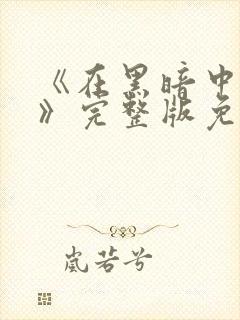 《在黑暗中
》完整版免
岚若兮